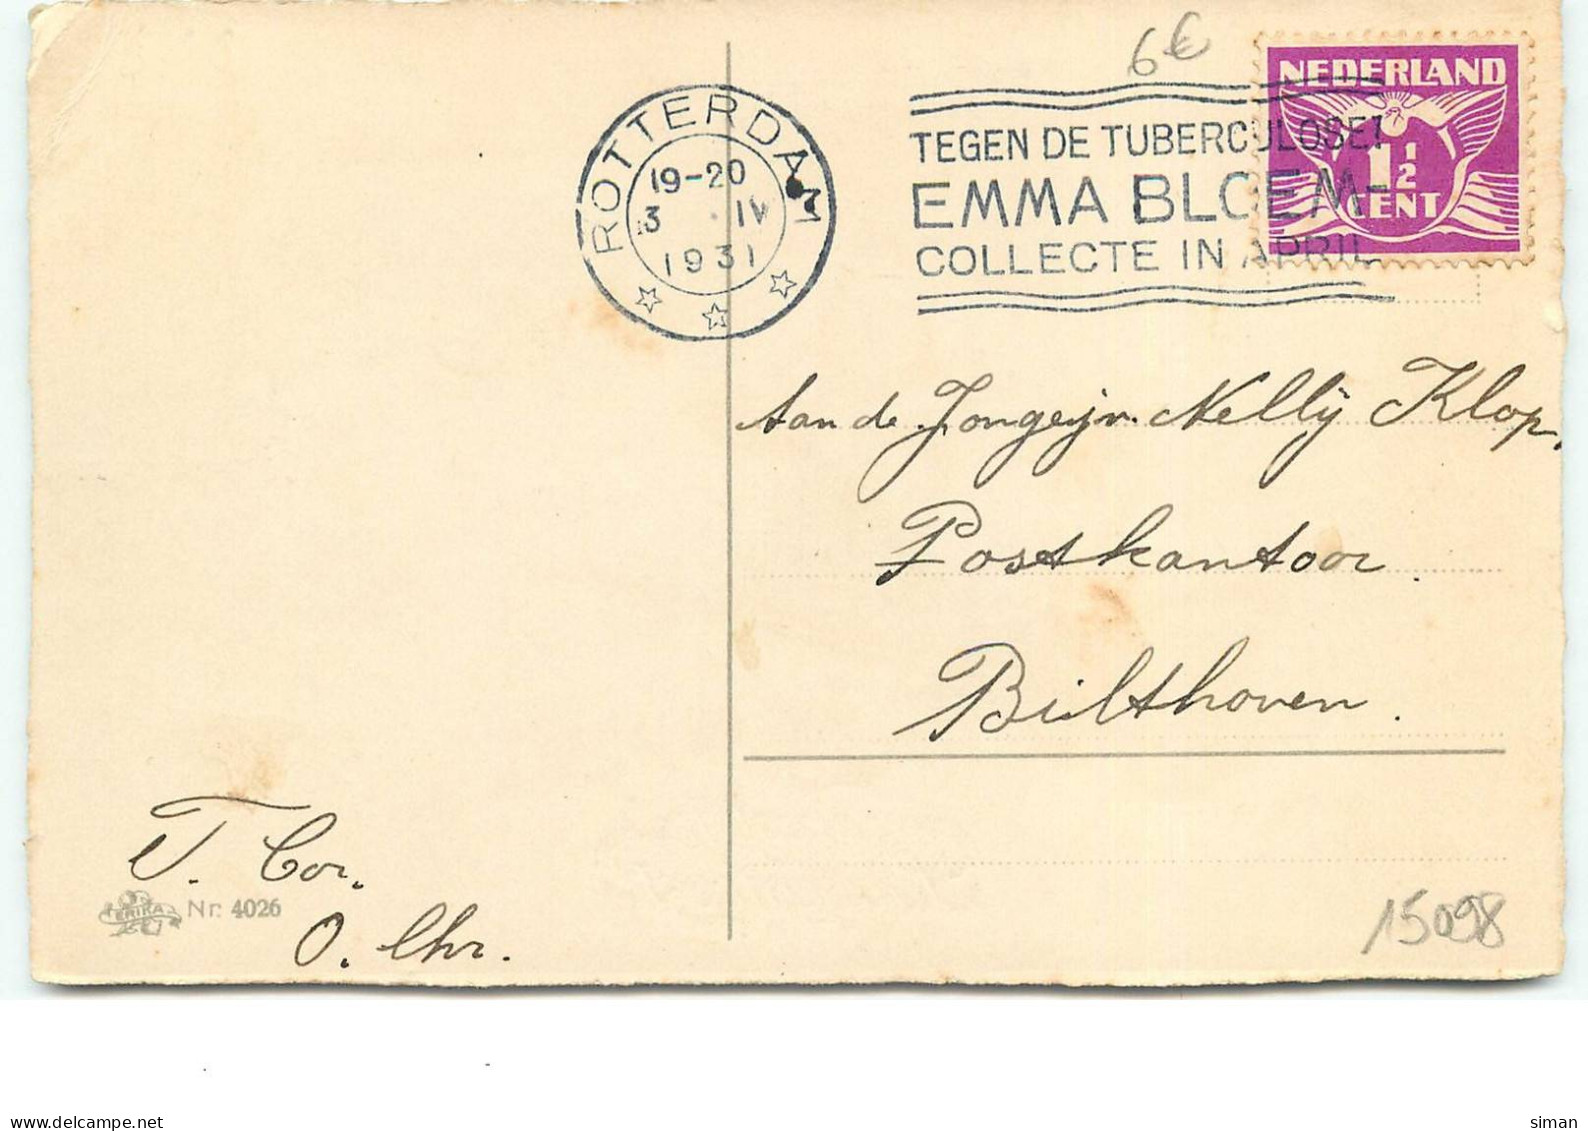 6€
NEDERLAND
1½
CENT
ROTTERDAM
19-20
3 IV
1931
TEGEN DE TUBERCULOSE!
EMMA BLOEM-
COLLECTE IN APRIL
Aan de Jongejn. Nelly Klop,
Postkantoor.
Bilthoven.
T. Cor.
ERIKA Nr. 4026
O. Chr.
15098
delcampe.net
siman